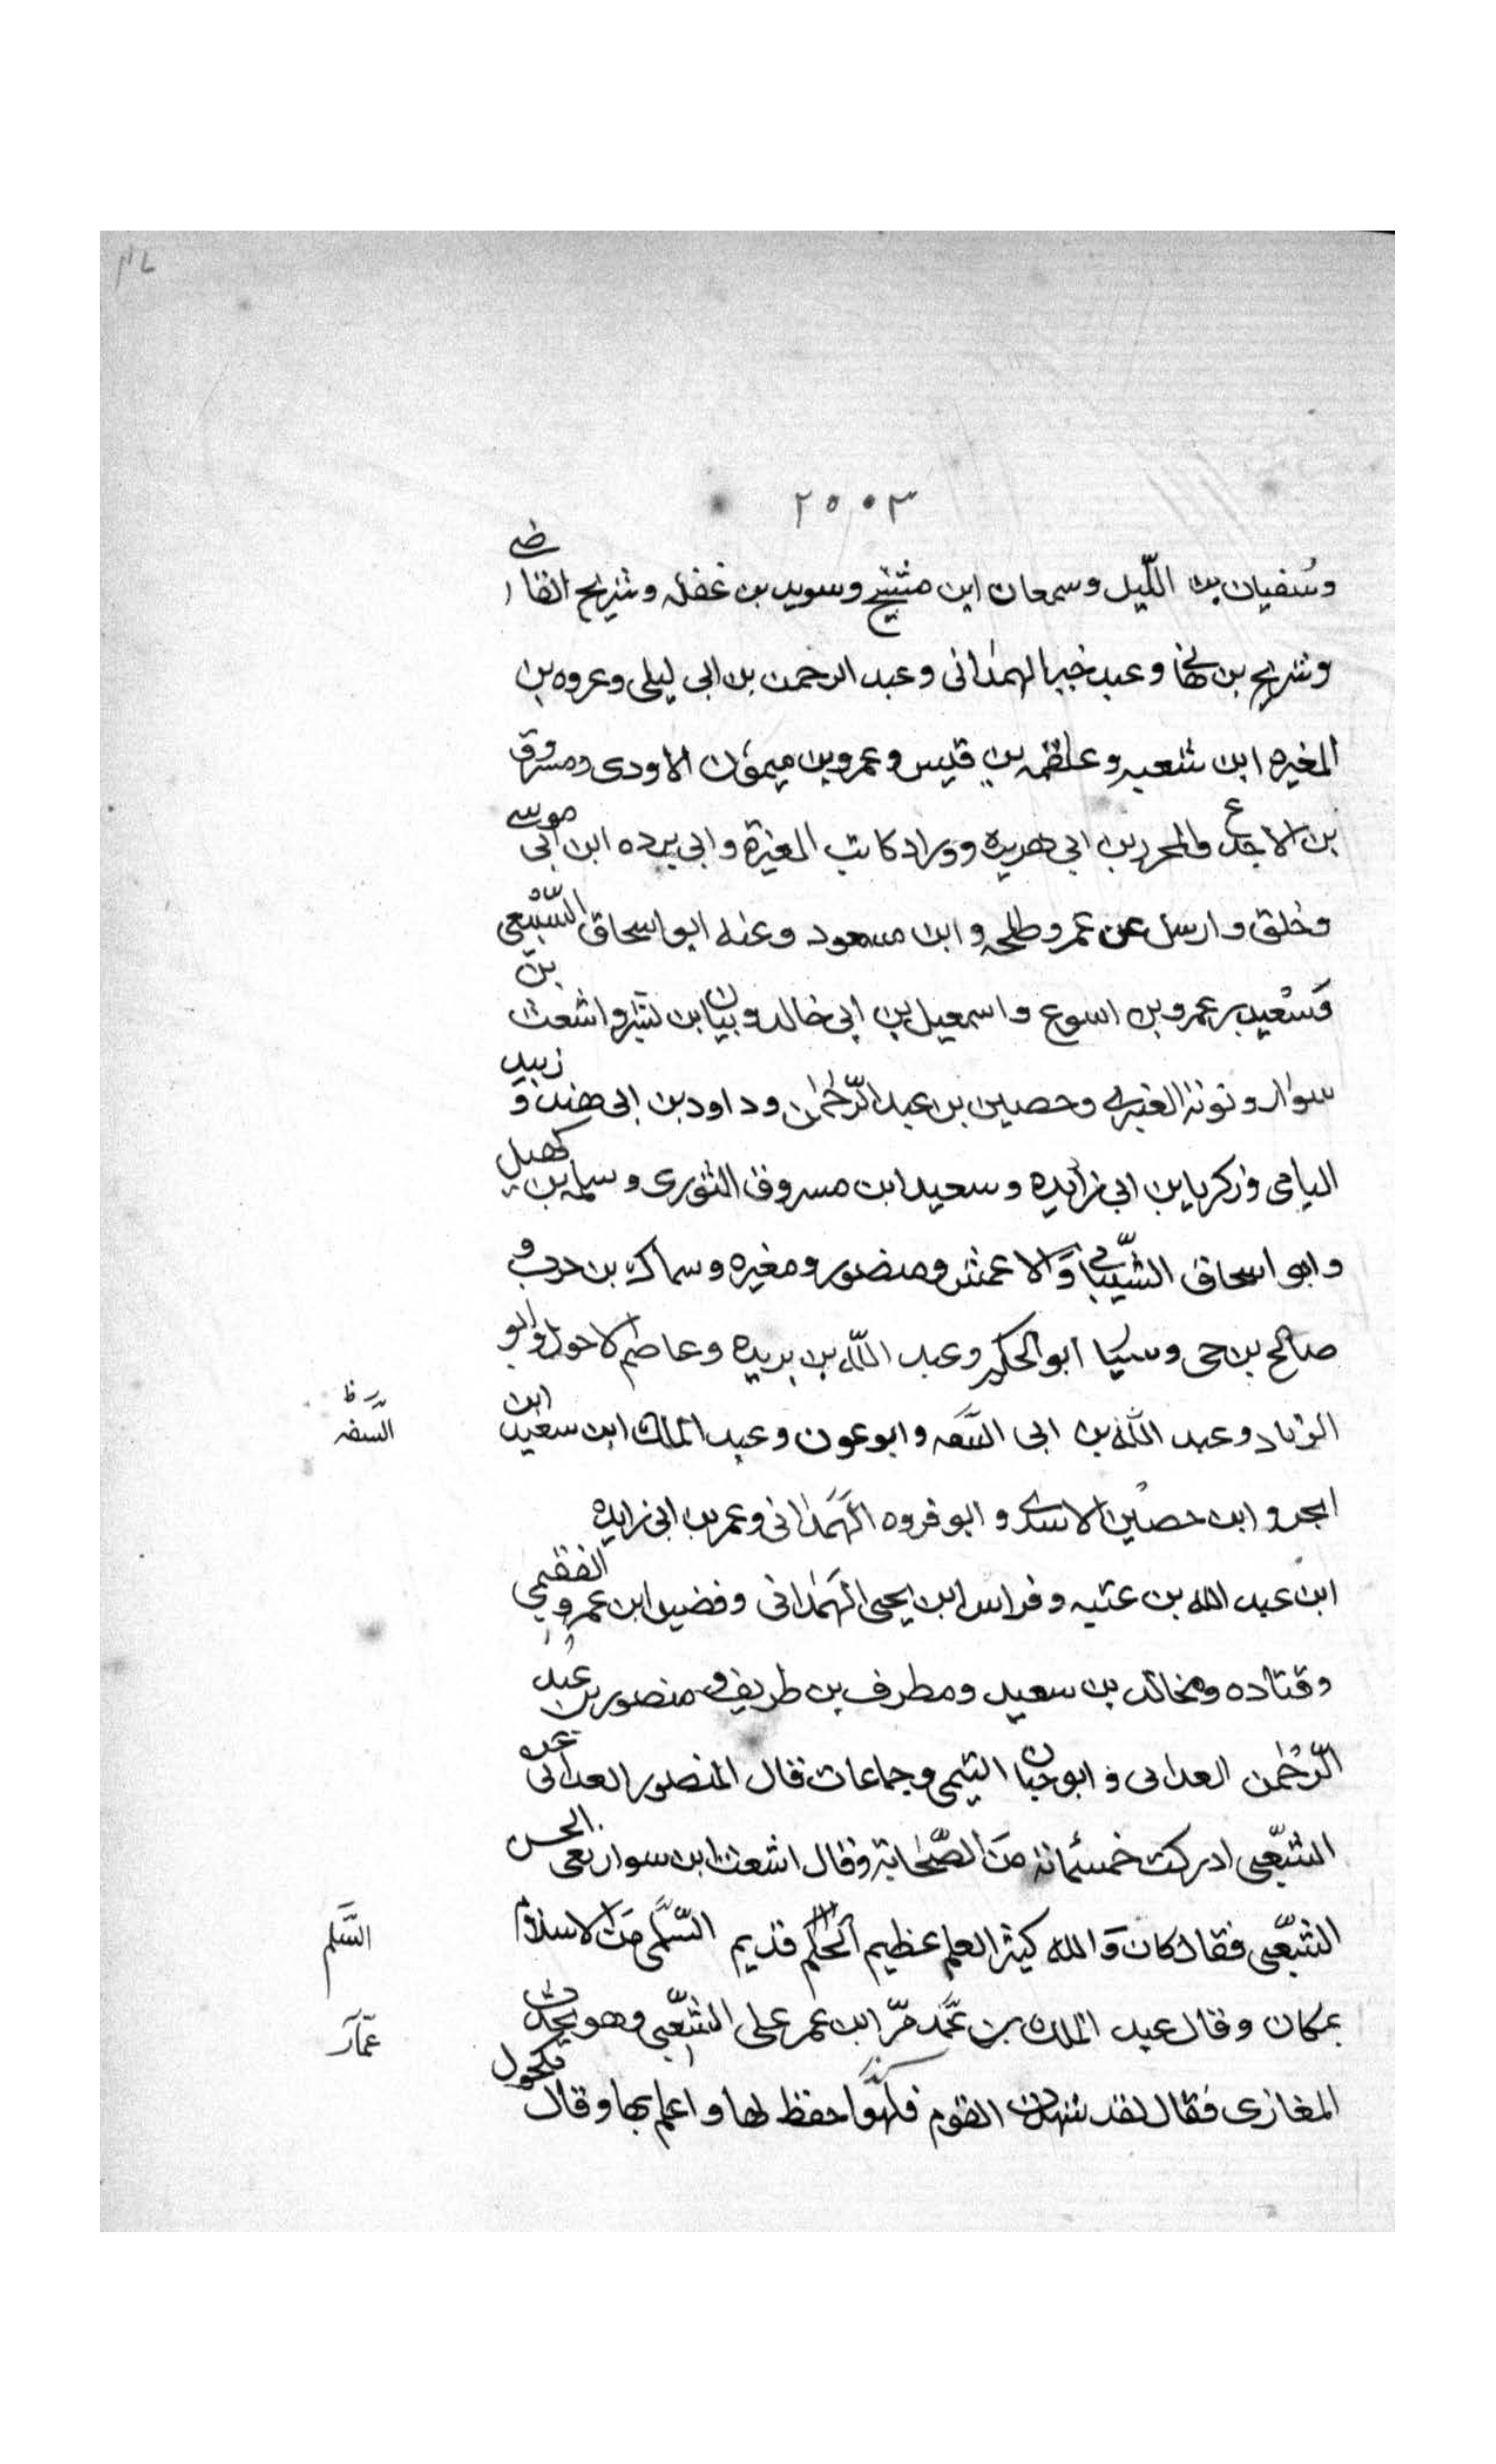 ٢٥٠٣
وسفيان بن الليل وسمعان ابن مشنج وسويد بن غفله وشريح القاضى
وشريح بن هانى وعبد خير الهمدانى وعبد الرحمن بن ابى ليلى وعروه بن
المغيره ابن شعبه وعلقمه بن قيس وعمرو بن ميمون الاودى ومسروق
بن الاجدع والمحرر بن ابى هريره ووراد كاتب المغيرة وابى برده ابن ابى موسى
وخلق وارسل عن عمر وطلحه وابن مسعود وعنه ابو اسحاق السّبيعى
وسعيد بن عمرو بن اسوع واسمعيل بن ابى خالد وبيان ابن بشر واشعث بن
سوار وتوبة العنبرى وحصين بن عبد الرّحمن وداود بن ابى هند وزبيد
اليامى وزكريا بن ابى زايده وسعيد ابن مسروق الثورى وسلمه بن كهيل
وابو اسحاق الشّيبانى والاعمش ومنصور ومغيره وسماك بن حرب و
صالح بن حى وسيار ابو الحكم وعبد اللّه بن بريده وعاصم الاحول وابو
الزناد وعبد اللّه بن ابى السّفه وابو عون وعبد الملك ابن سعيد ابن
السّفه ظ
ابجر وابن حصين الاسدى وابو فروه الهمدانى وعمر بن ابى زايده
ابن عبد الله بن عتبه وفراس ابن يحيى الهمدانى وفضيل ابن عمرو الفقيمى
وقتاده ومخالد بن سعيد ومطرف بن طريف ومنصور بن عبد
الرّحمن الغدانى وابو حيان التيمى وجماعات قال المنصور الغدانى عن
الشّعبى ادركت خمسمائة من الصّحابة وقال اشعث ابن سوار نعى الحسن
الشّعبى فقال كان والله كثير العلم عظيم الحلم قديم السّلمى من الاسلام
السَّلم
بمكان وقال عبد الملك بن عمّد مرّ ابن عمر على الشّعبى وهو يحدث
عمّار
المغازى فقال لقد شهدت القوم فلهو احفظ لها واعلم بها وقال مكحول